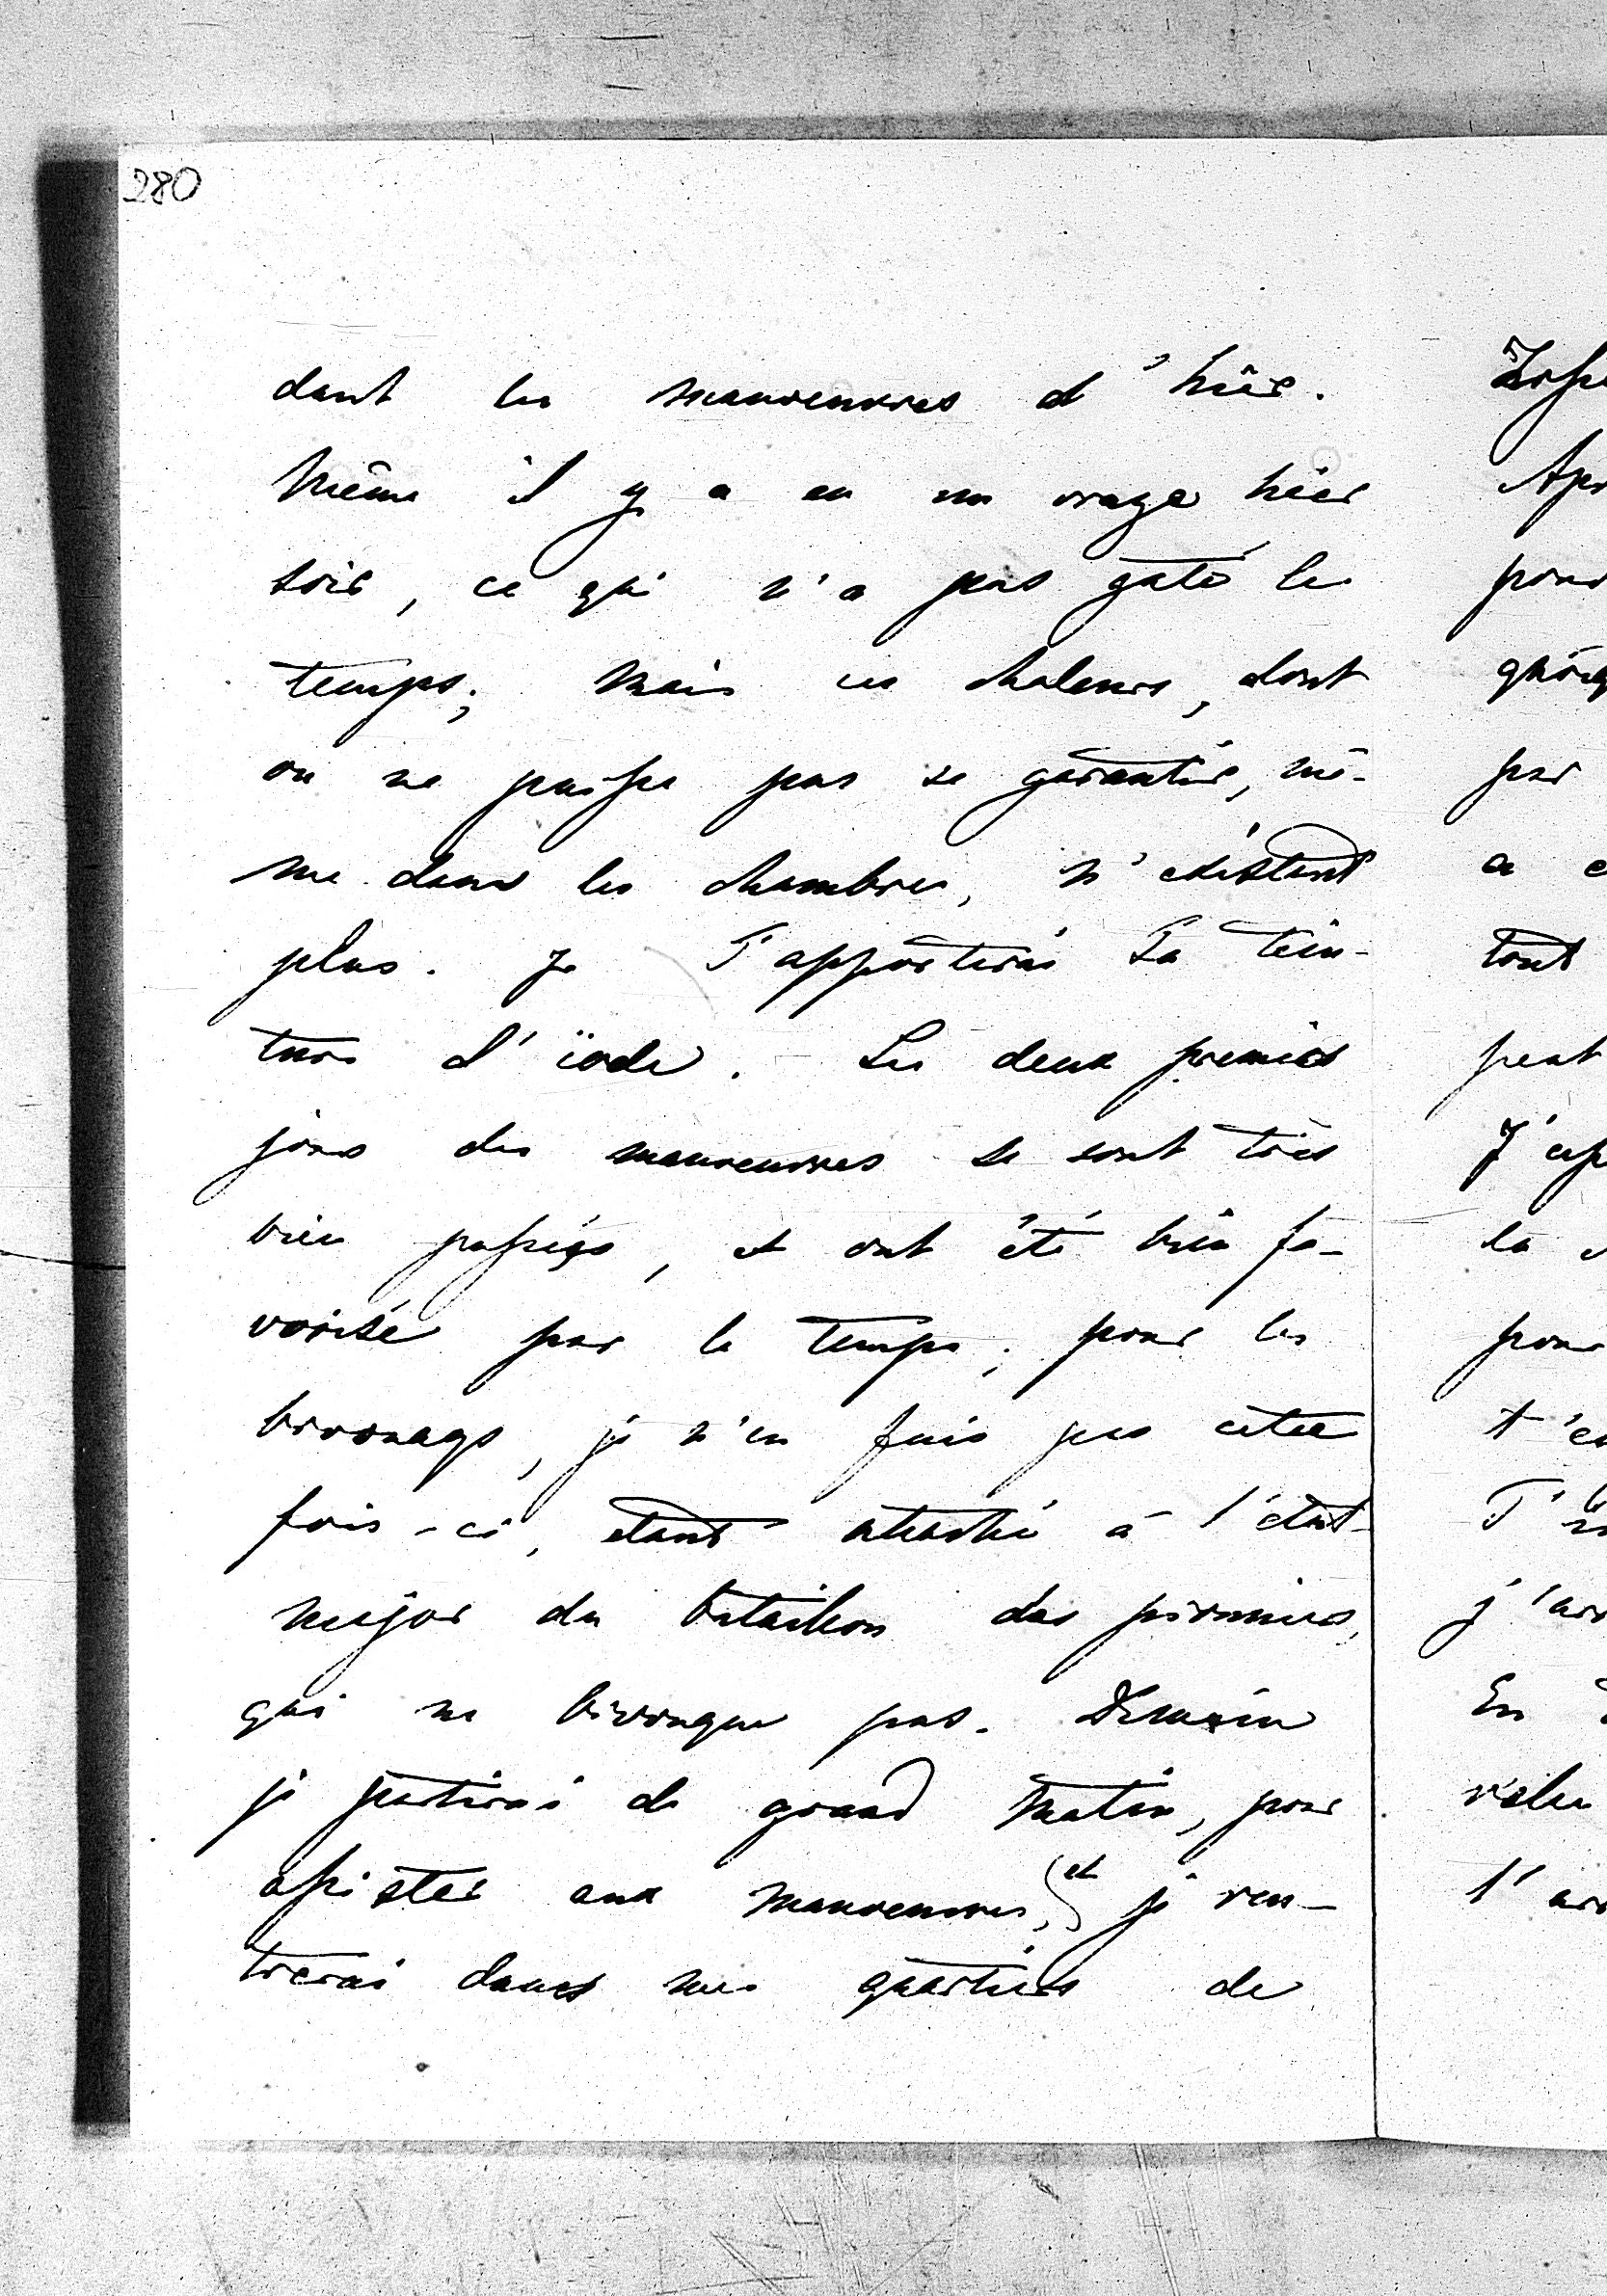 280
dant les manoeuvres d'hier.
Même il y a eu un orage hier
soir, ce qui n'a pas gâté le
temps; mais ces chaleurs, dont
on ne puisse pas se garantir, mê-
me dans les chambres, n'existent
plus. Je T'apporterai Ta tein-
ture d'iode. Les deux premiers
jours des manoeuvres se sont très
bien passés, et ont été bien fa-
vorisé par le temps; pour les
bivouaqs, je n'en fais pas cette
fois-ci, étant attaché à l'état-
major du bataillon des pionniers,
qui ne bivouaque pas. Demain
je partirai de grand matin, pour
assister aux manoeuvres, et je ren-
trerai dans mes quartiers de
par
tout
peut
la
pour
En